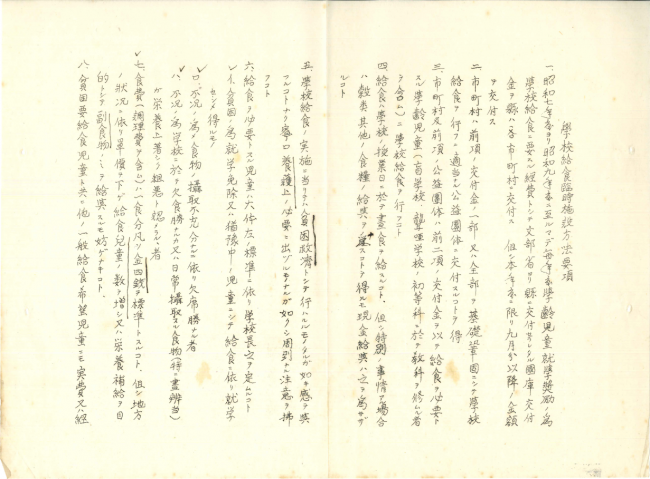 學校給食臨時施設方法要項
一、昭和七年度ヨリ昭和九年度ニ至ルマデ毎年度學齡兒童就學奬勵ノ爲
學校給食ニ要スル經費トシテ文部省ヨリ縣ニ交付セラレタル國庫交付
金ヲ縣ハ各市町村ニ交付ス 但シ本年度ニ限リ九月分以降ノ金額
ヲ交付ス
二、市町村ハ前項ノ交付金ノ一部又ハ全部ヲ基礎鞏固ニシテ學校
給食ヲ行フニ適當ナル公益團體ニ交付スルコトヲ得
三、市町村及前項ノ公益團体ハ前二項ノ交付金ヲ以テ給食ヲ必要ト
スル學齡兒童(盲學校、聾唖學校ノ初等科ニ於テ教科ヲ修ムル者
ヲ含ム)ニ學校給食ヲ行フコト
四、給食ハ學校ノ授業日ニ於テ晝食ヲ給スルコト、但シ特別ノ事情アル場合
ハ穀類其他ノ食糧ノ給與ヲ爲スコトヲ得ルモ現金給與ハ之ヲ爲サザ
ルコト
五、學校給食ノ實施ニ當リテハ貧困救濟トシテ行ハルルモノタルノ如キ感ヲ與
フルコトナク寧ロ養護上ノ必要ニ出ヅルモノナルガ如クシ周到ナル注意ヲ拂
フコト
六、給食ヲ必要トスル兒童ハ大体左ノ標準ニ依リ學校長之ヲ定ムルコト
イ、貧困ノ爲就学免除又ハ猶豫中ノ兒童ニシテ給食ニ依リ就学
セシメ得ルモノ
ロ、不況ノ爲メ食物ノ攝取不充分ニ依リ欠席勝ナル者
ハ、不況ノ爲学校ニ於テ欠食勝ナルカ又ハ日常攝取スル食物(特ニ晝辨当)
ガ栄養上著シク粗悪ト認メラルル者
七、食費(調理費ヲ含ム)ハ一食分凡ソ金四銭ヲ標準トスルコト、但シ地方
ノ状況ニ依リ單價ヲ下ゲ給食兒童ノ數ヲ増シ又ハ栄養補給ヲ目
的トシテ副食物ノミヲ給與スルモ妨ゲナキコト、
八、貧困要給食兒童ト共ニ他ノ一般給食希望兒童ニモ実費又ハ經